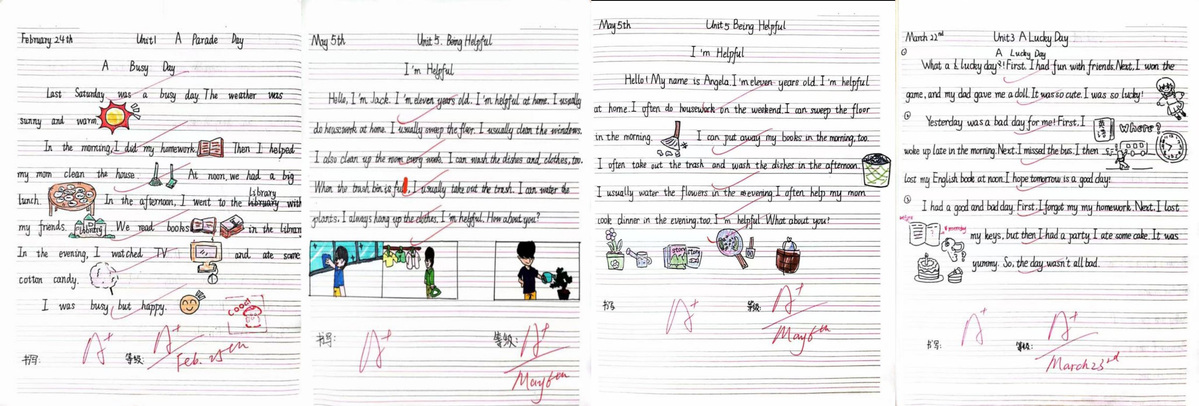 February 24th Unit1 A Parade Day
A Busy Day
Last Saturday was a busy day. The weather was
sunny and warm.
In the morning, I did my homework. Then I helped
my mom clean the house. At noon, we had a big
lunch. In the afternoon, I went to the library with
my friends. We read books in the librar
In the evening, I watched TV and ate some
cotton candy.
I was busy but happy.
Good
书写: A+ 等级: A+
Feb. 25th
May 5th Unit 5. Being Helpful
I'm Helpful
Hello, I'm Jack. I'm eleven years old. I'm helpful at home. I usually
do housework at home. I usually sweep the floor. I usually clean the windows.
I also clean up the room every week. I can wash the dishes and clothes, too.
When the trash bin is full, I usually take out the trash. I can water the
plants. I always hang up the clothes. I'm helpful. How about you?
书写: A+ 等级: A+
May 6th
May 5th Unit 5 Being Helpful
I'm Helpful
Hello! My name is Angela. I'm eleven years old. I'm helpful
at home. I often do housework on the weekend. I can sweep the floor
in the morning. I can put away my books in the morning, too.
I often take out the trash and wash the dishes in the afternoon.
I usually water the flowers in the evening. I often help my mom
cook dinner in the evening, too. I'm helpful. What about you?
story story
书写: A+ 等级: A+
May 6th
March 22nd Unit3 A Lucky Day
A Lucky Day
① What a lucky day! First, I had fun with friends. Next, I won the
game, and my dad gave me a doll. It was so cute. I was so lucky!
② Yesterday was a bad day for me! First, I Where?
woke up late in the morning. Next, I missed the bus. I then
lost my English book at noon. I hope tomorrow is a good day!
③ I had a good and bad day. First, I forgot my my homework. Next, I lost
my keys, but then I had a party. I ate some cake. It was
yummy. So, the day wasn't all bad.
书写: A+ 等级: A+
March 23rd